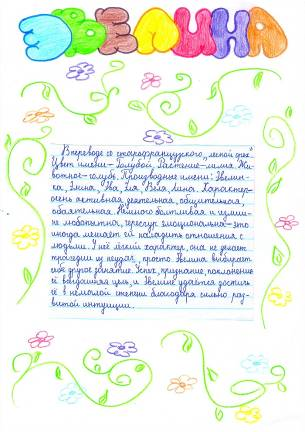 ЭВЕЛИНА
В переводе со старофранцузского "лесной орех".
Цвет имени - голубой. Растение - липа. Жи-
вотное - голубь. Производные имени: Эвелин-
ка, Элина, Эва, Эля, Вэля, Лина. Характер -
очень активная, деятельная, общительная,
обаятельная. Немного болтливая и излиш-
не любопытна, чересчур эмоциональна - это
иногда мешает ей наладить отношения с
людьми. У неё лёгкий характер, она не делает
трагедии из неудач, просто Эвелина выбирает
себе другое занятие. Успех, признание, поклонение
её вечная цель, и Эвелине удаётся достичь
её в немалой степени благодаря сильно раз-
витой интуиции.